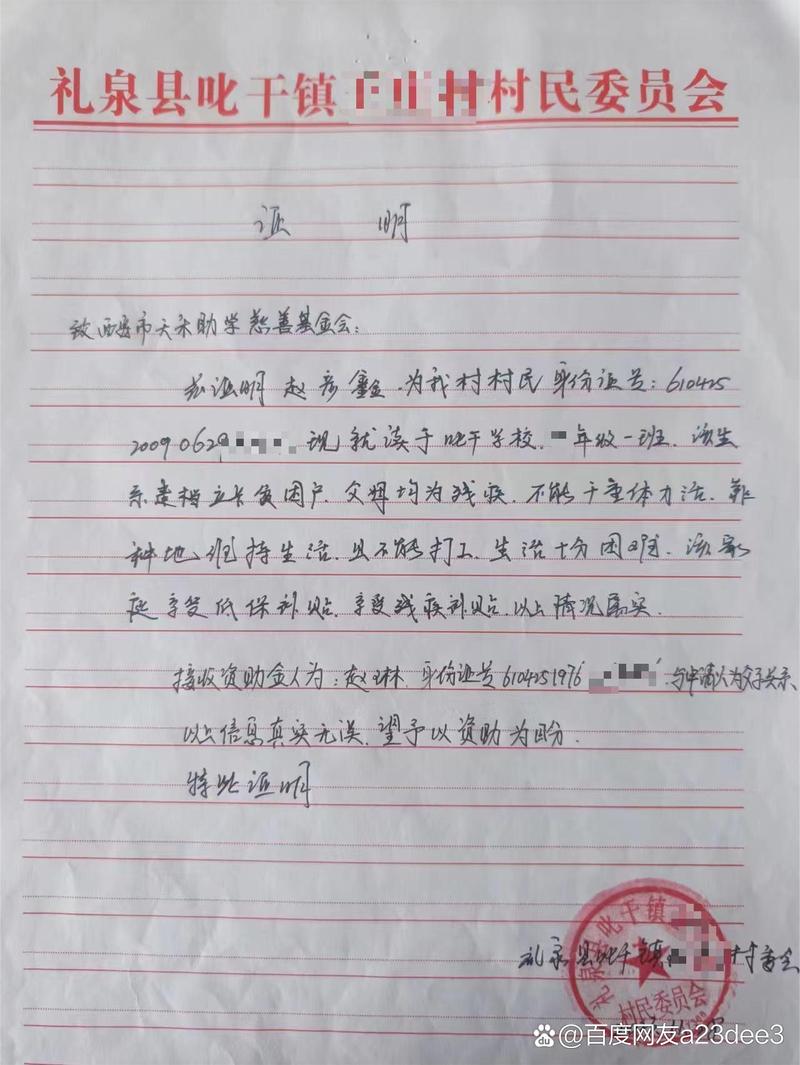 礼泉县叱干镇 村村民委员会
证 明
致西安市天禾助学慈善基金会:
兹证明赵彦鑫,为我村村民身份证号:610425
20090629 现就读于叱干学校,一年级一班,该生
系建档立卡贫困户,父母均为残疾,不能干重体力活,靠
种地维持生活,且不能打工,生活十分困难,该家
庭享受低保补贴,享受残疾补贴,以上情况属实.
接收资助金人为:赵琳,身份证号6104251976 与申请人为父子关系
以上信息真实无误,望予以资助为盼.
特此证明
礼泉县叱干镇 村委会
礼泉县叱干镇 村民委员会
@百度网友a23dee3